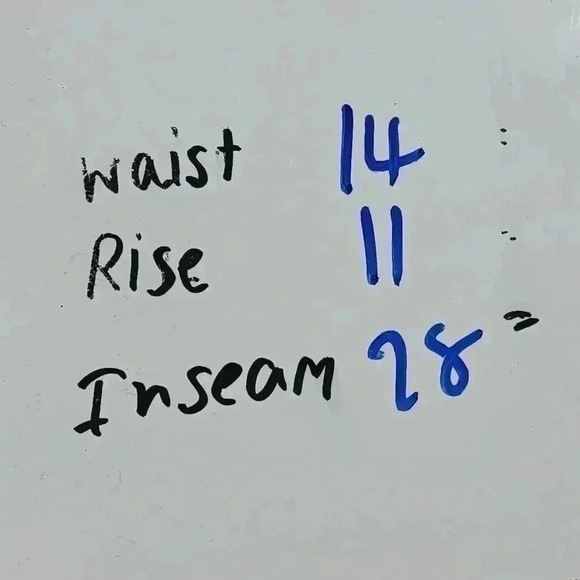 Waist 14
Rise 11
Inseam 28"